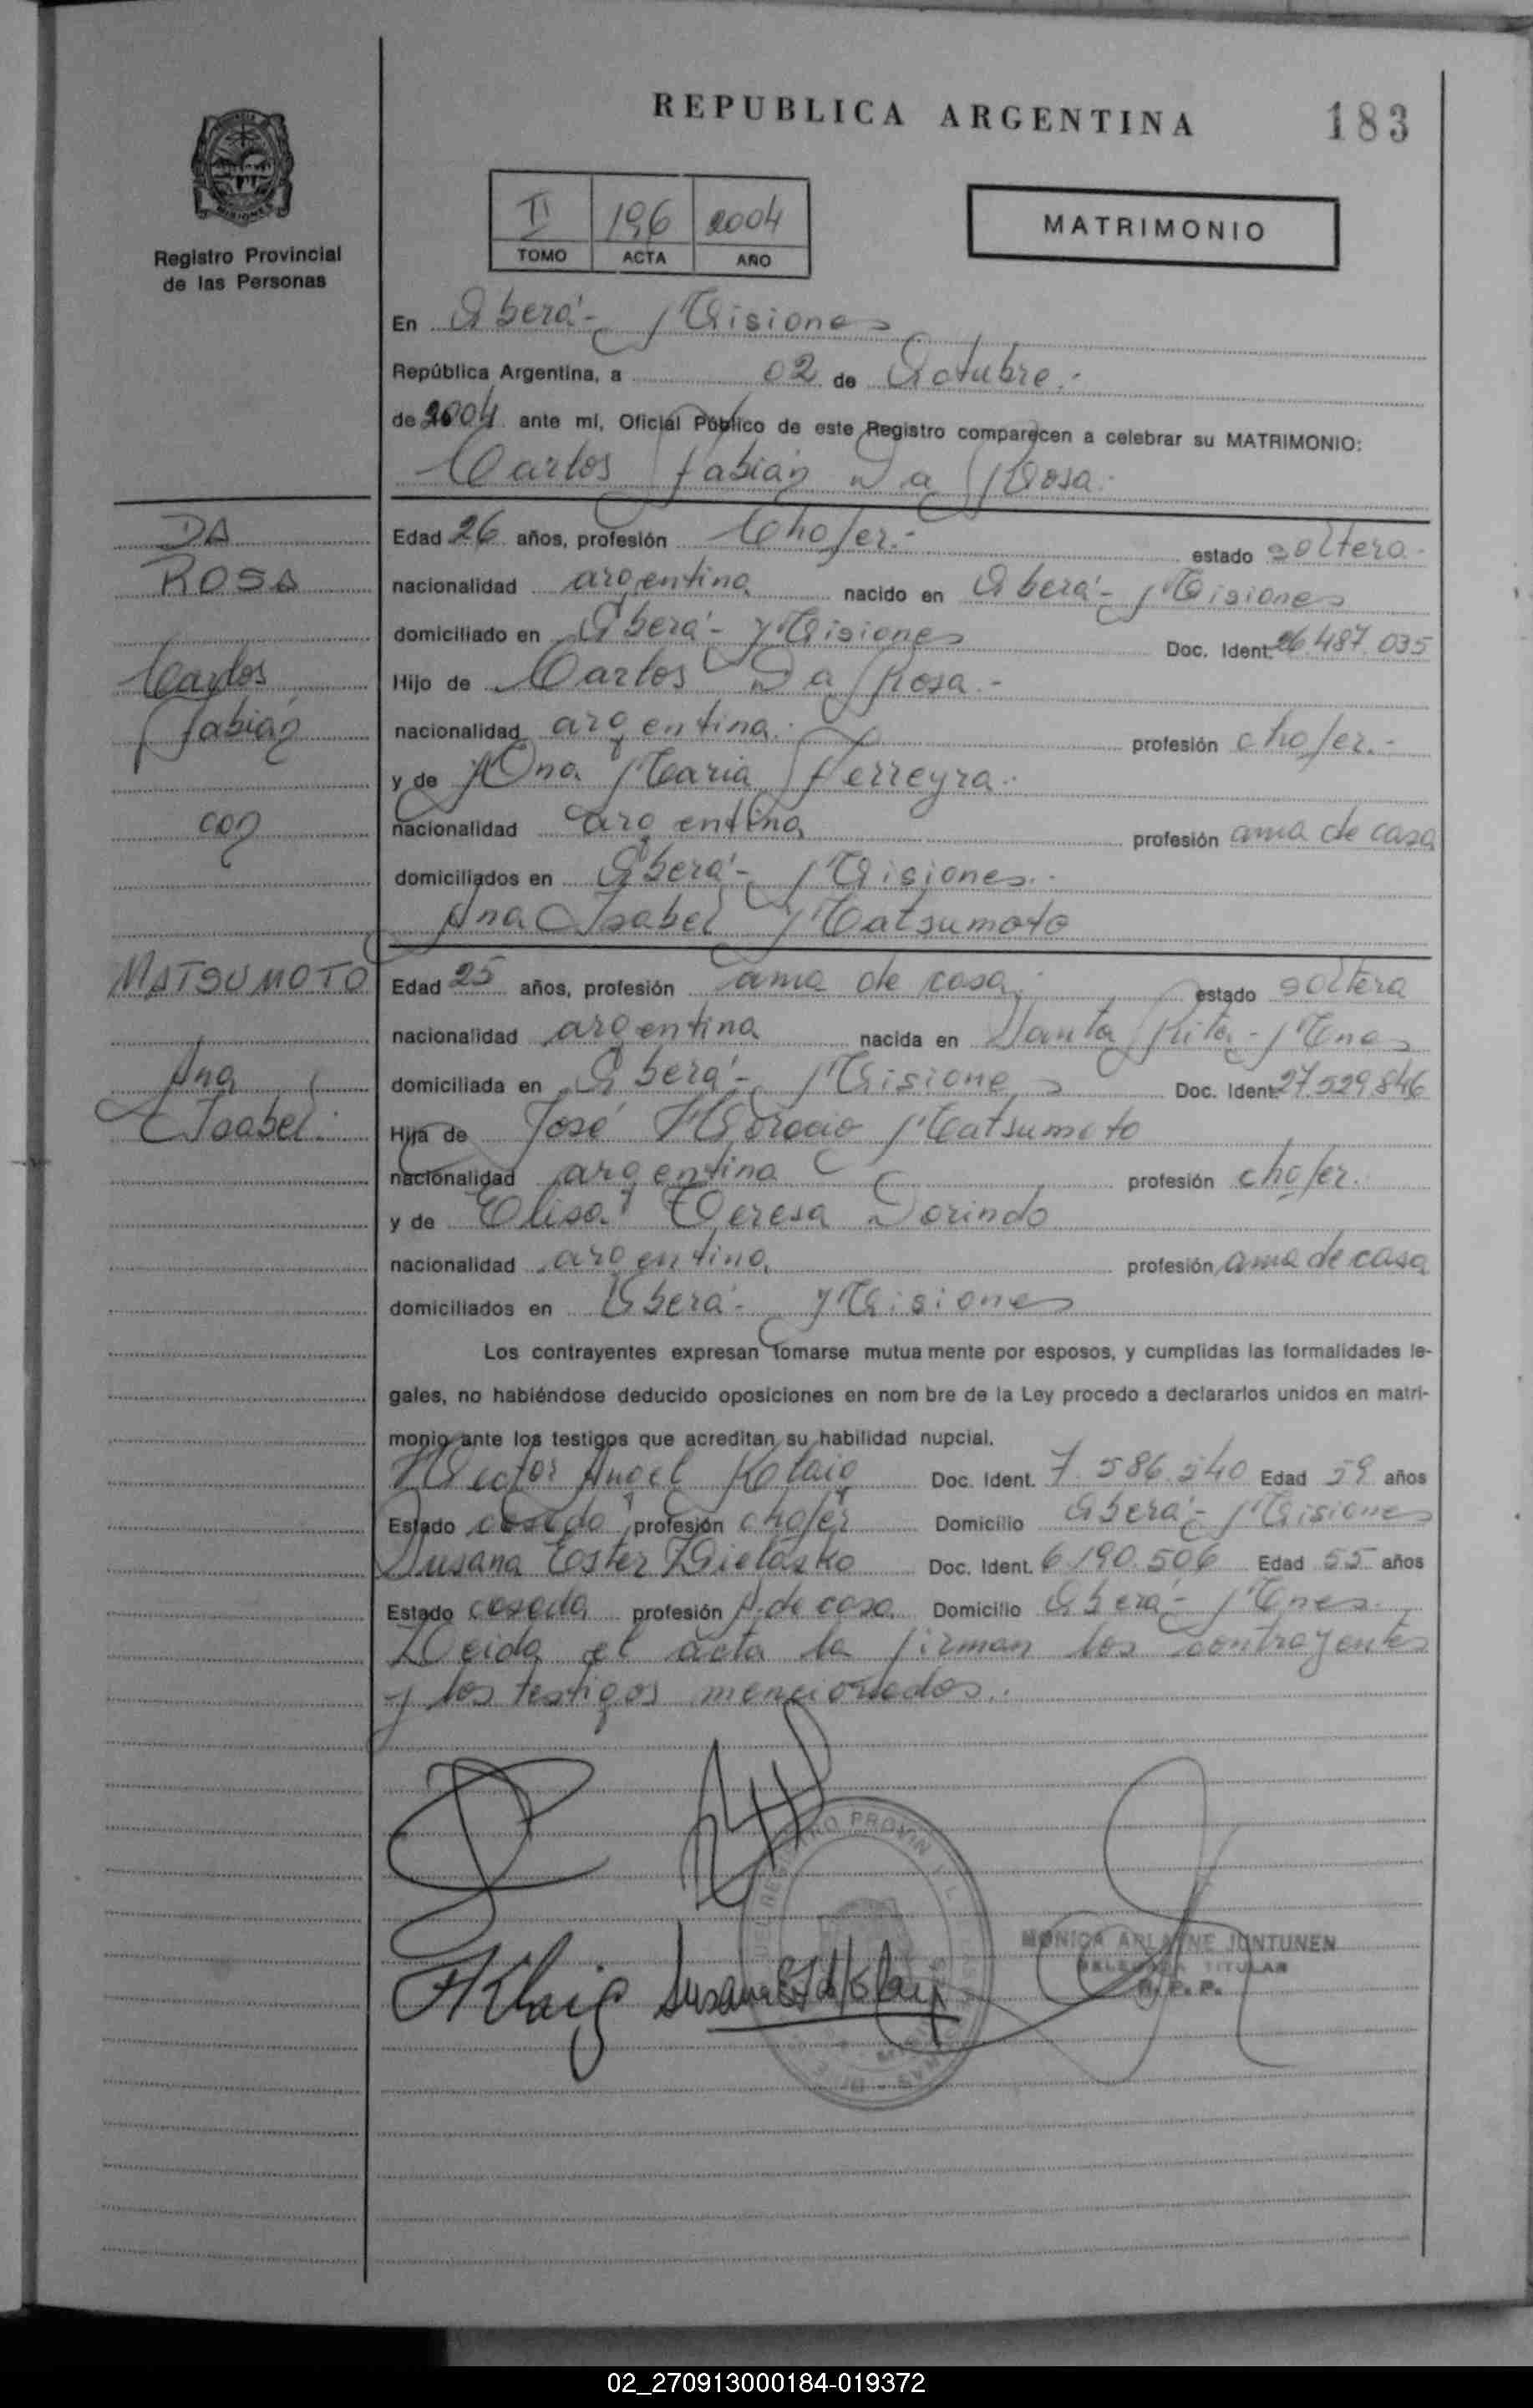 REPUBLICA ARGENTINA
183
Registro Provincial
de las Personas
II 196 2004
TOMO ACTA AÑO
MATRIMONIO
En Oberá- Misiones
República Argentina, a 02 de Octubre.-
de 2004 ante mí, Oficial Público de este Registro comparecen a celebrar su MATRIMONIO:
Carlos Fabián Da Rosa.-
DA
ROSA
Carlos
Fabián
con
MATSUMOTO
Ana
Isabel.
Edad 26 años, profesión Chofer.- estado soltero.-
nacionalidad argentina nacido en Oberá- Misiones
domiciliado en Oberá- Misiones Doc. Ident. 26.487.035
Hijo de Carlos Da Rosa.-
nacionalidad argentina. profesión chofer.-
y de Ana Maria Ferreyra.-
nacionalidad argentina profesión ama de casa
domiciliados en Oberá- Misiones.-
Ana Isabel Matsumoto
Edad 25 años, profesión ama de casa. estado soltera
nacionalidad argentina nacida en Santa Rita- Mnes
domiciliada en Oberá- Misiones Doc. Ident. 27.529.846
Hija de José Horacio Matsumoto
nacionalidad argentina profesión chofer.
y de Elisa Teresa Dorindo
nacionalidad argentina profesión ama de casa
domiciliados en Oberá- Misiones
Los contrayentes expresan tomarse mutua mente por esposos, y cumplidas las formalidades le-
gales, no habiéndose deducido oposiciones en nom bre de la Ley procedo a declararlos unidos en matri-
monio ante los testigos que acreditan su habilidad nupcial.
Hector Angel Doc. Ident. 7.586.540 Edad 59 años
Estado casado profesión chofer Domicilio Oberá- Misiones
Susana Ester Doc. Ident. 6.190.506 Edad 55 años
Estado casada profesión A. de casa Domicilio Oberá- Mnes.
Leida el acta la firman los contrayentes
y los testigos mencionados.-
MONICA ARLAINE JUNTUNEN
DELEGADA TITULAR
R. P. P.
02_270913000184-019372